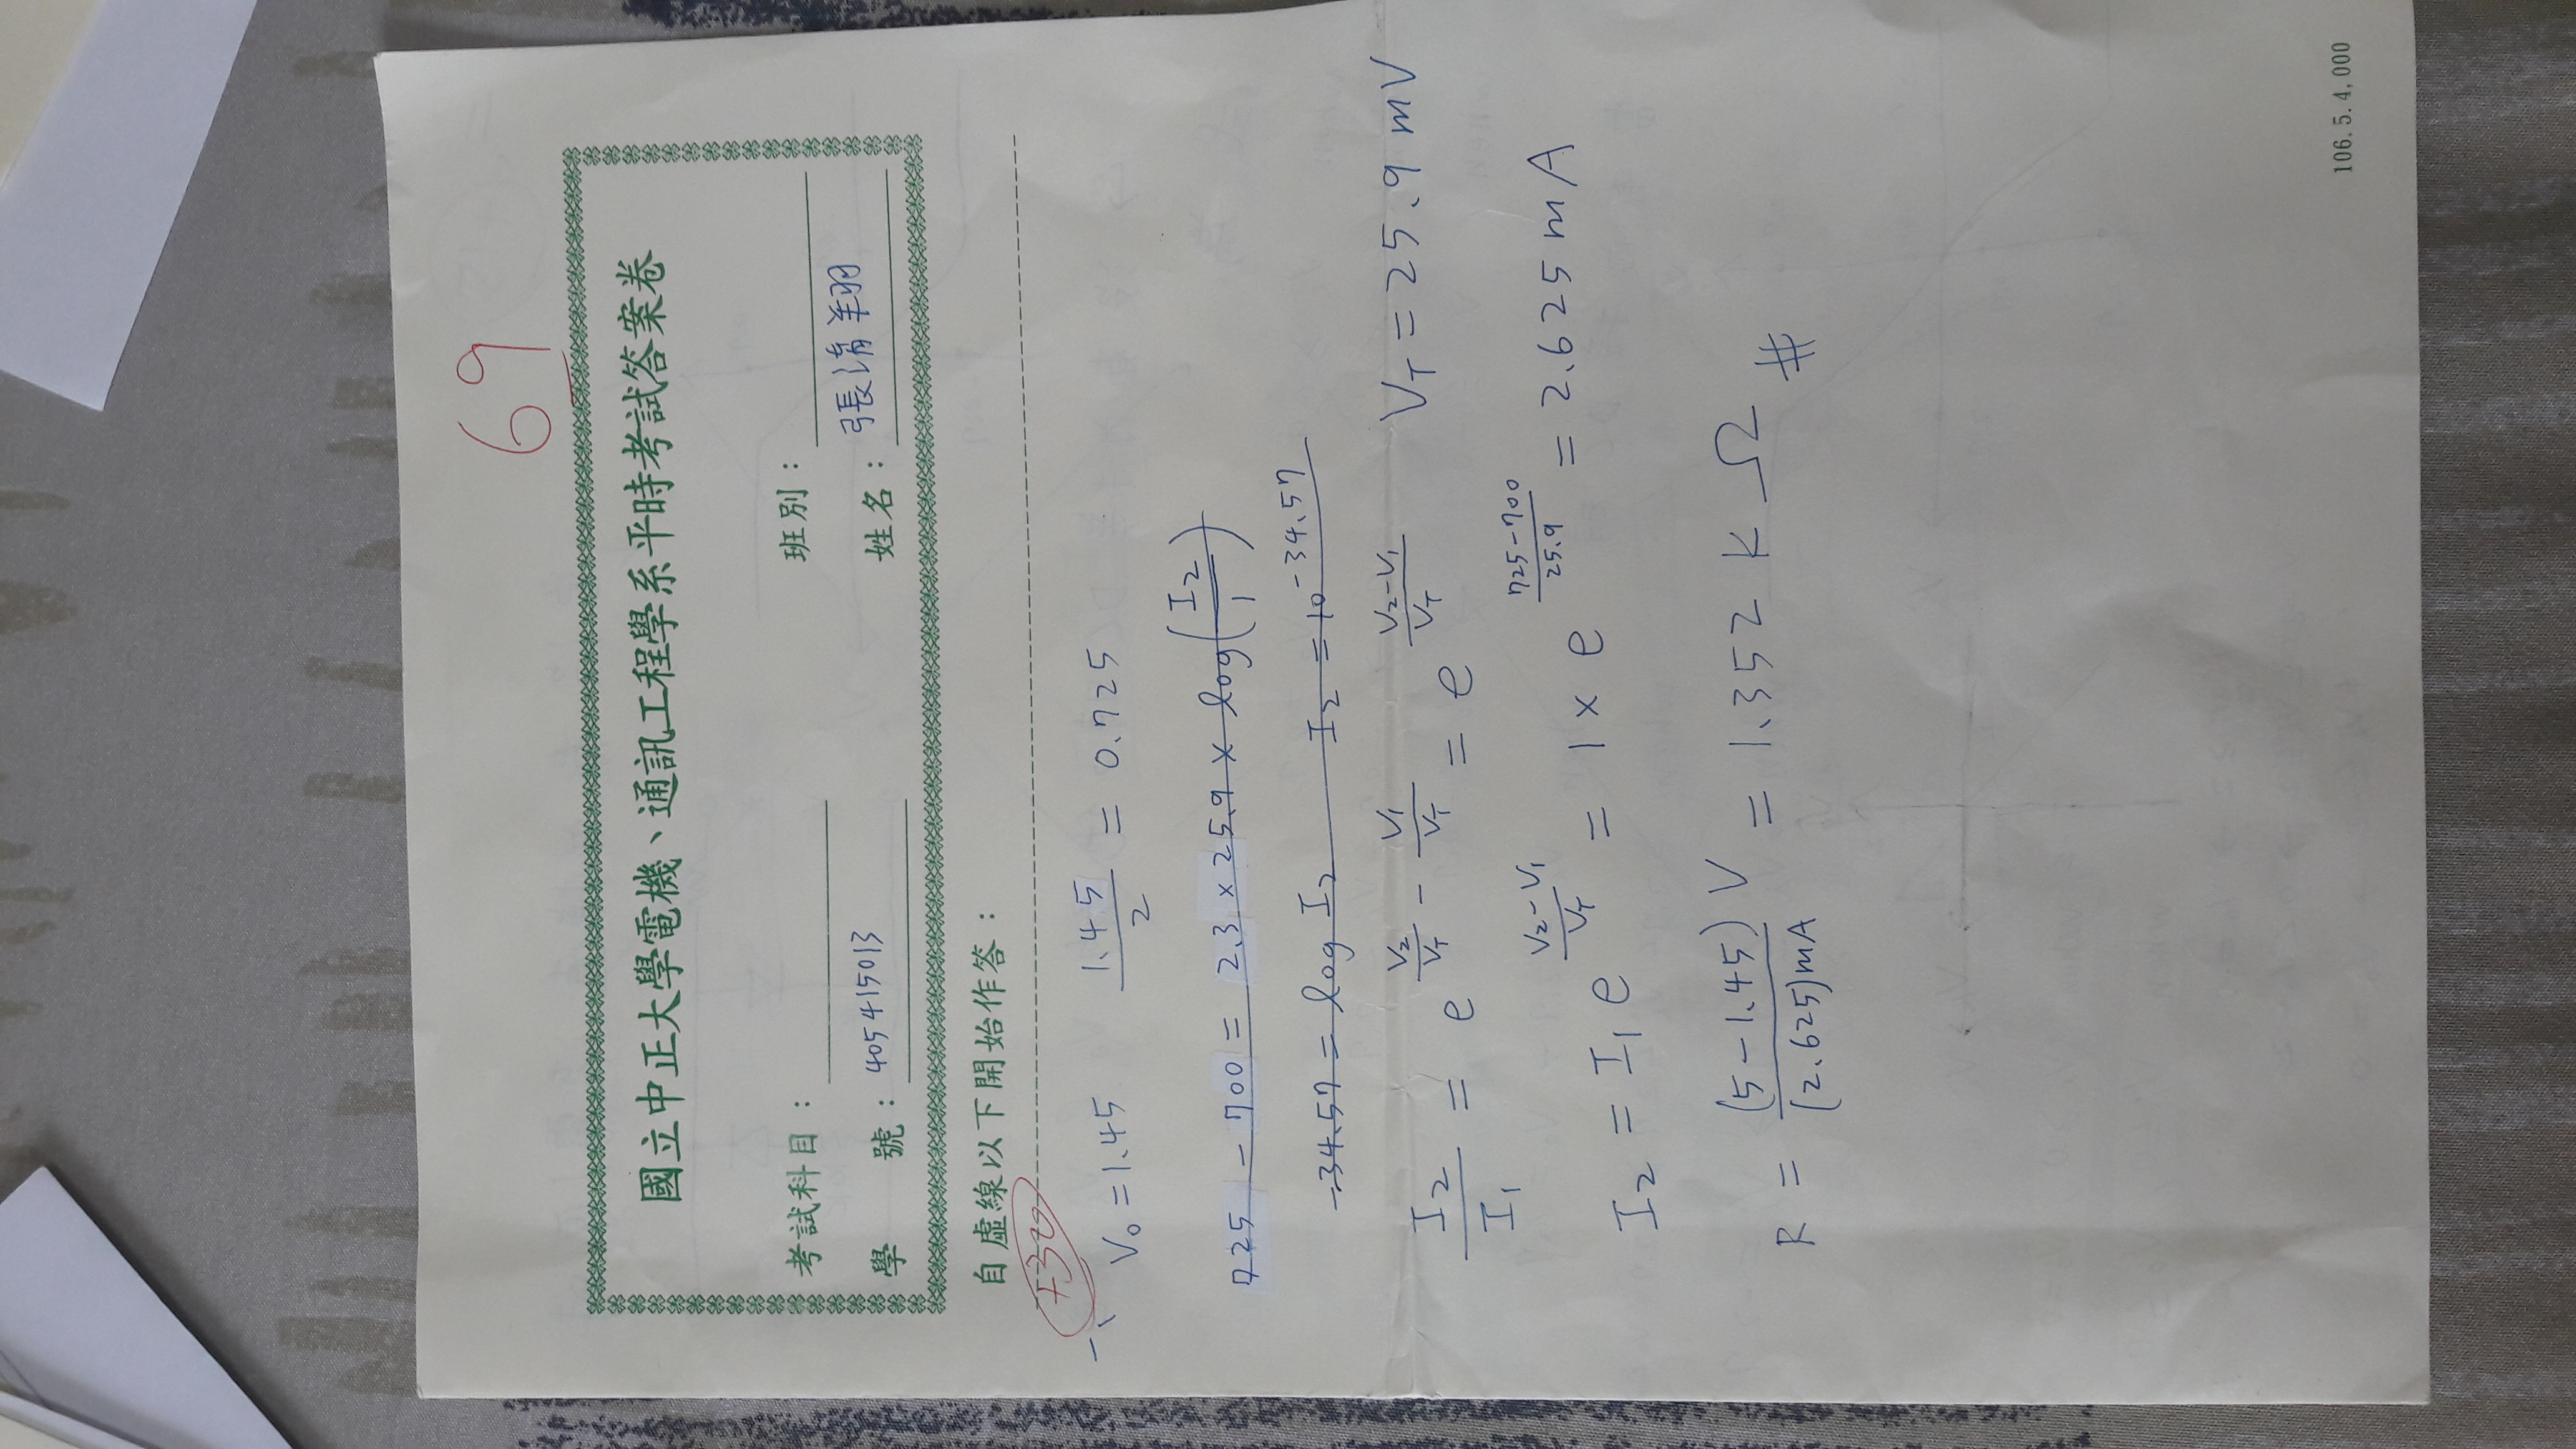 69
國立中正大學電機、通訊工程學系平時考試答案卷
考試科目：
班別：
學 號：405415013
姓名：張清翔
自虛線以下開始作答：
+30
一、
V₀ = 1.45 1.45/2 = 0.725
725 - 700 = 2.3 × 25.9 × log(I₂/1)
-34.57 = log I₂ I₂ = 10^-34.57
I₂/I₁ = e^(V₂/V_T - V₁/V_T) = e^((V₂-V₁)/V_T) V_T = 25.9 mV
I₂ = I₁ e^((V₂-V₁)/V_T) = 1 × e^((725-700)/25.9) = 2.625 mA
R = (5-1.45) V/(2.625) mA = 1.352 k Ω #
106.5.4,000